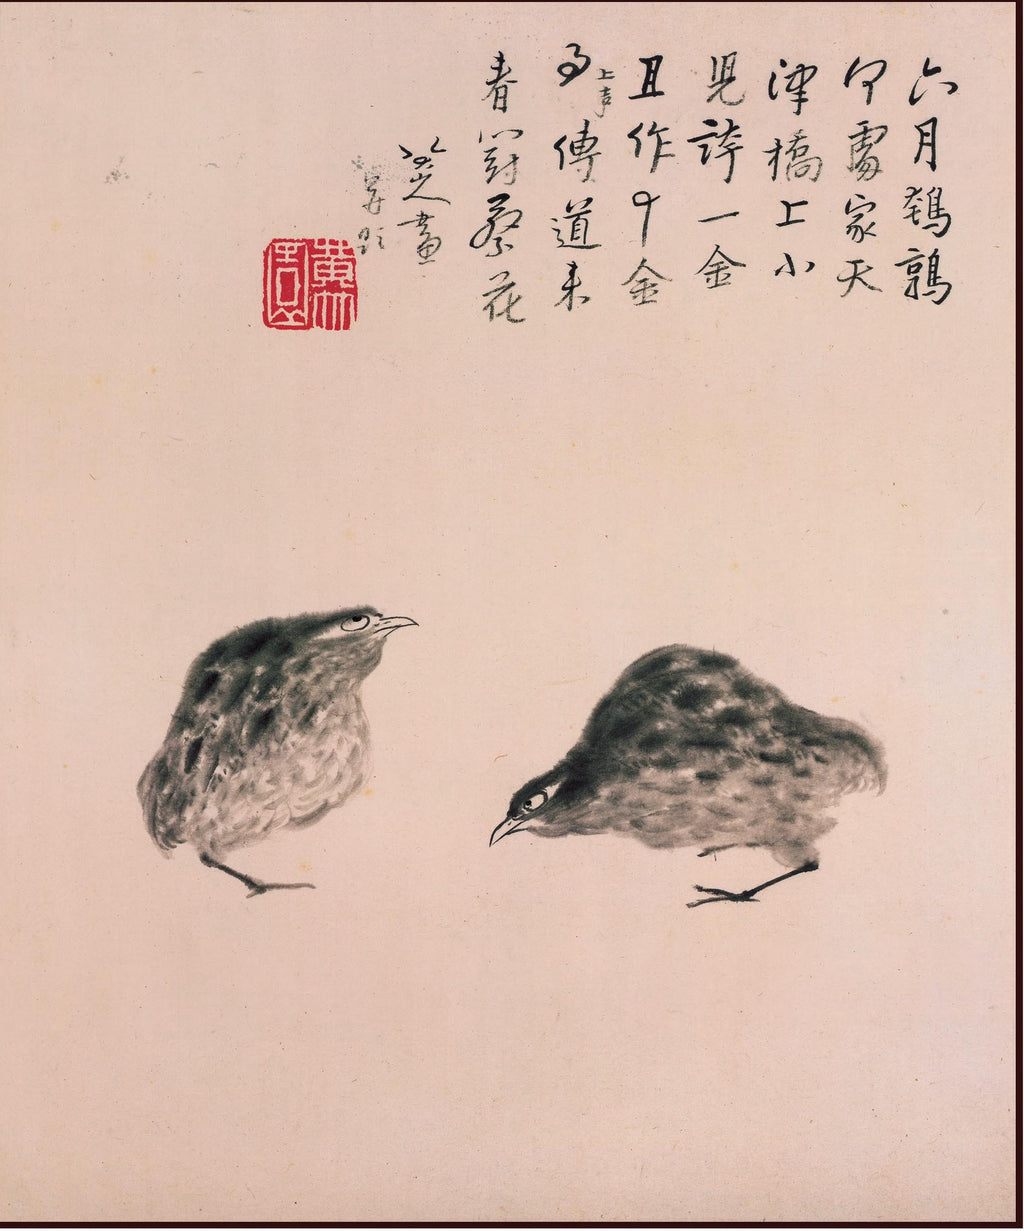 六月鵪鶉
何處家天
津橋上小
児誇一金
且作十金
上声
傳道来
春鬥蔡花
八大山人畫
并題